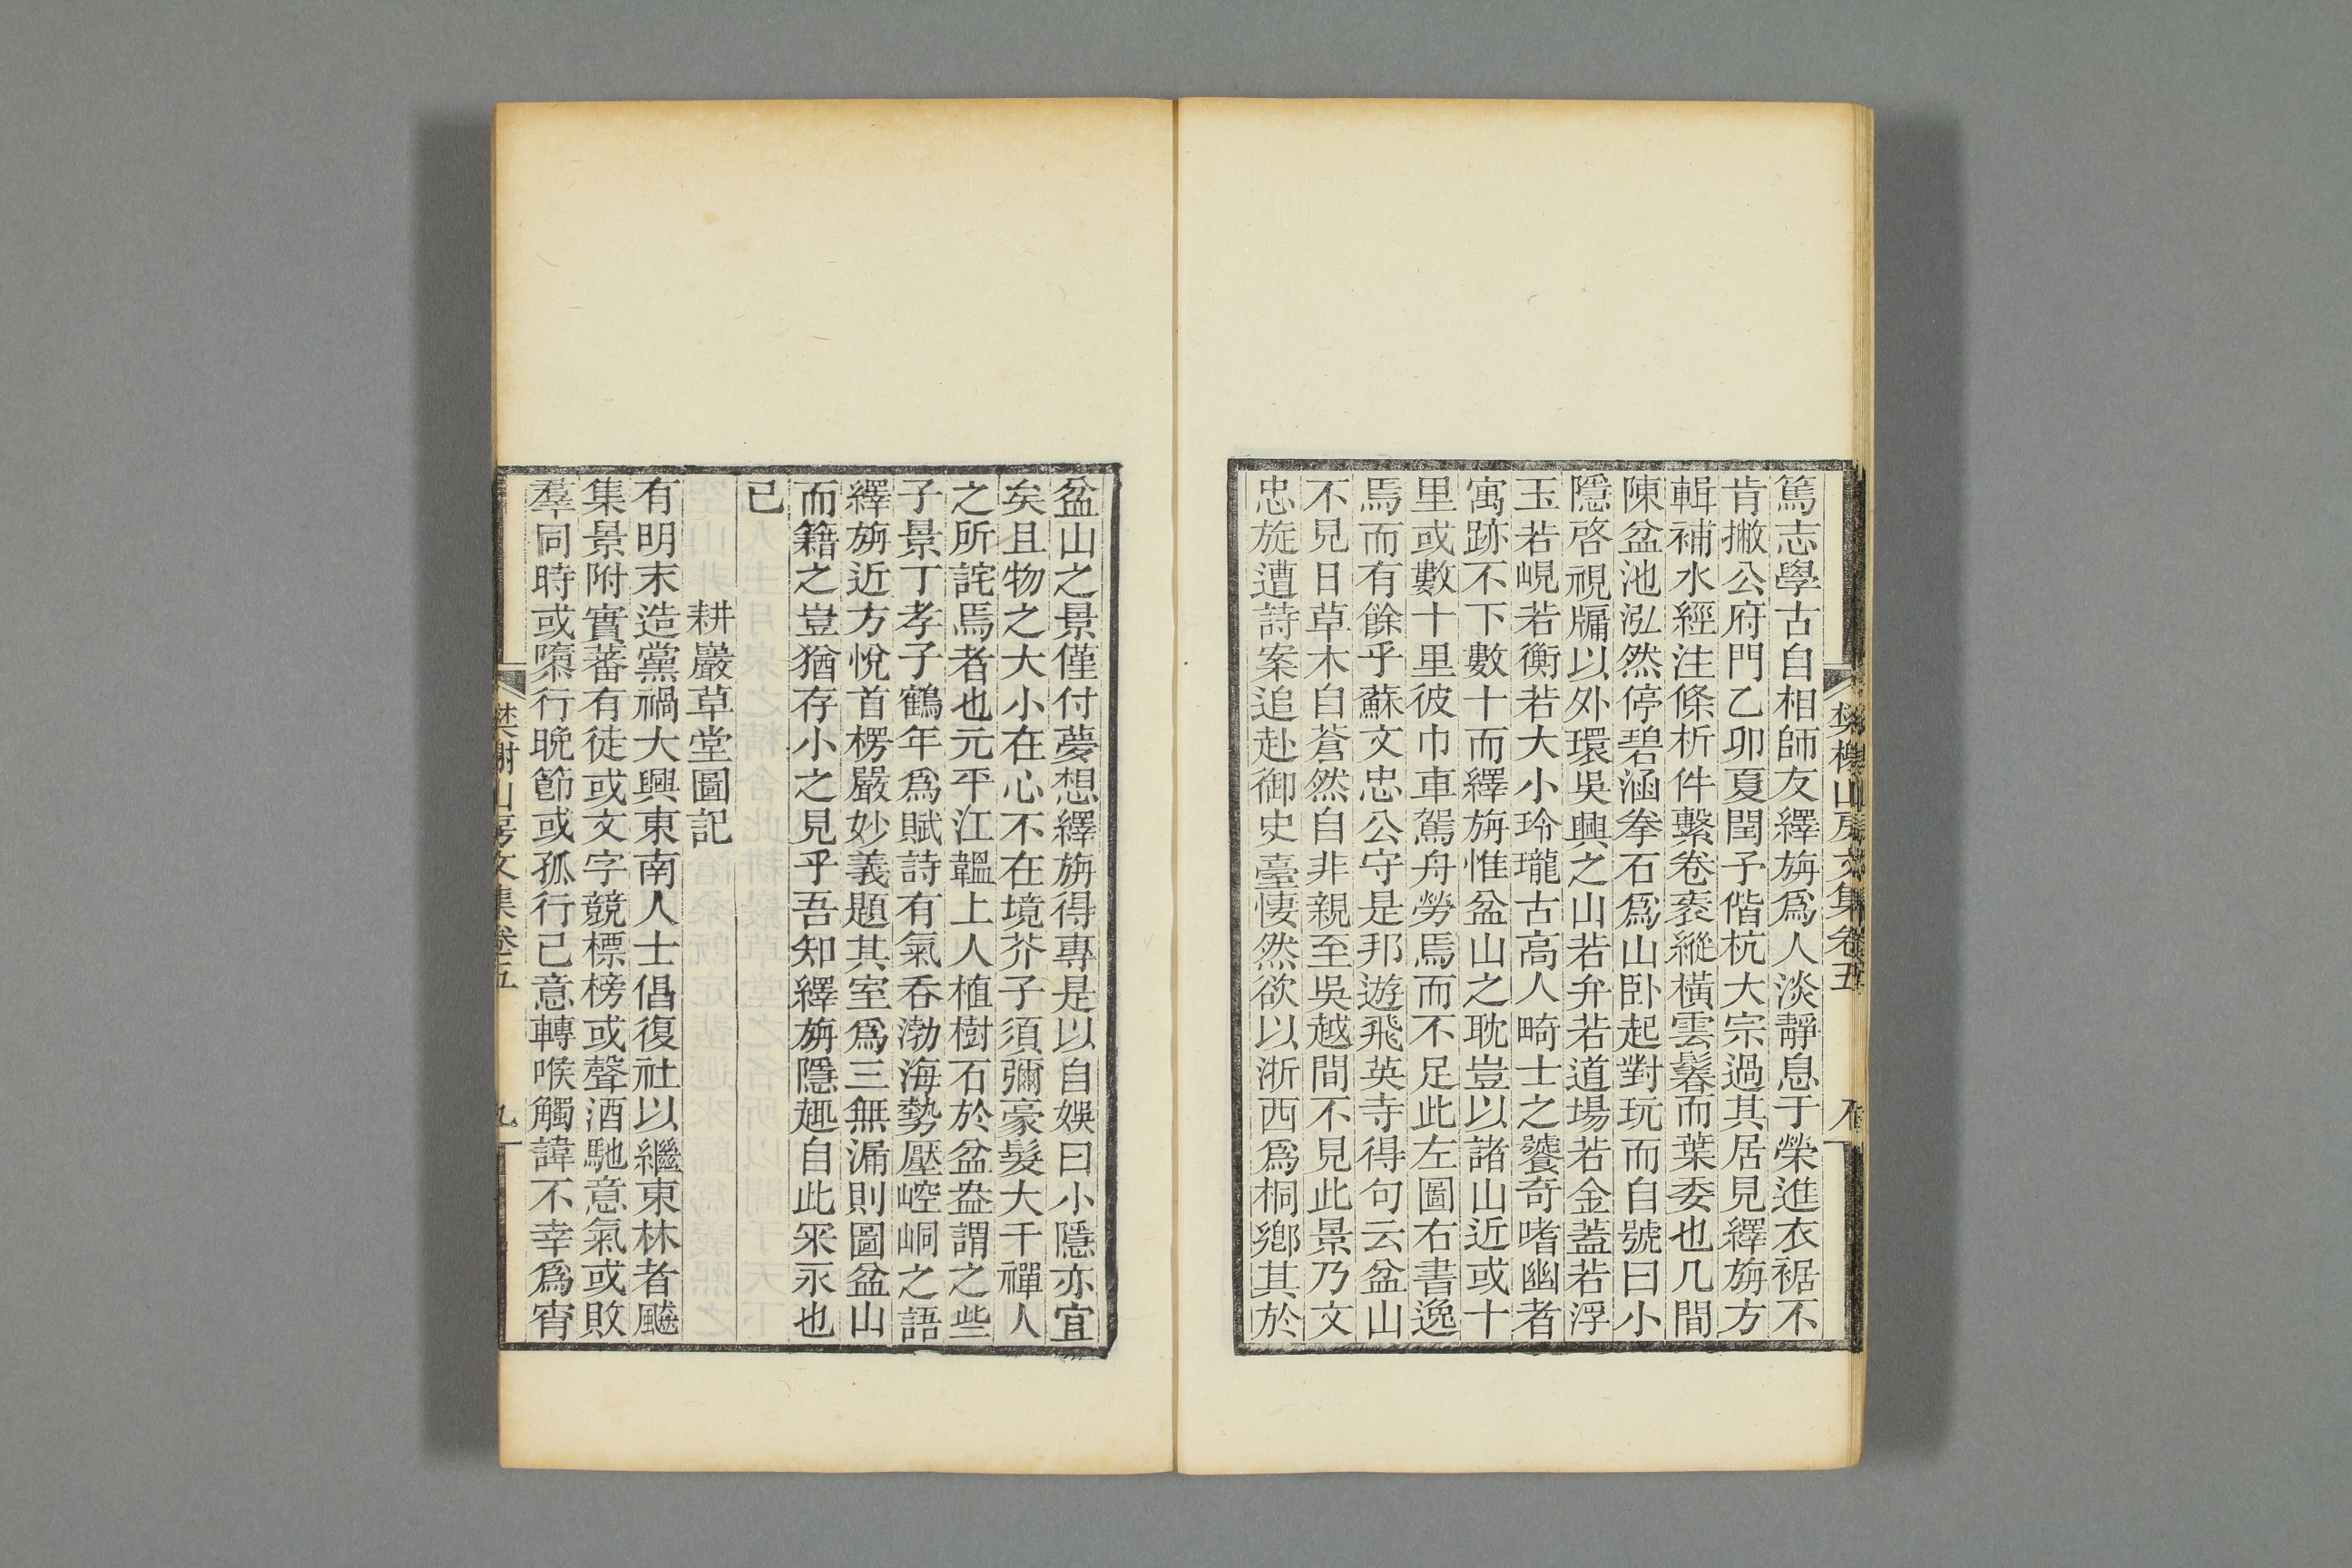 樊榭山房文集卷五
篤志學古自相師友繹旃爲人淡靜息于榮進衣裾不
肯撇公府門乙卯夏閏子偕杭大宗過其居見繹旃方
輯補水經注條析件繫卷袠縱橫雲鬈而葉委也几間
陳盆池泓然停碧涵拳石爲山卧起對玩而自號曰小
隱啓視牖以外環吳興之山若弁若道場若金蓋若浮
玉若峴若衡若大小玲瓏古高人畸士之饕奇嗜幽者
寓跡不下數十而繹旃惟盆山之耽豈以諸山近或十
里或數十里彼巾車駕舟勞焉而不足此左圖右書逸
焉而有餘乎蘇文忠公守是邦遊飛英寺得句云盆山
不見日草木自蒼然自非親至吳越間不見此景乃文
忠旋遭詩案追赴御史臺悽然欲以浙西爲桐鄉其於
盆山之景僅付夢想繹旃得專是以自娛曰小隱亦宜
矣且物之大小在心不在境芥子須彌豪髮大千禪人
之所詫焉者也元平江韞上人植樹石於盆盎謂之些
子景丁孝子鶴年爲賦詩有氣吞渤海勢壓崆峒之語
繹旃近方悅首楞嚴妙義題其室爲三無漏則圖盆山
而籍之豈猶存小之見乎吾知繹旃隱趣自此罙永也
已
耕巖草堂圖記
有明末造黨禍大興東南人士倡復社以繼東林者飈
集景附實蕃有徒或文字競標榜或聲酒馳意氣或敗
羣同時或隳行晚節或孤行己意轉喉觸諱不幸爲宵
樊榭山房文集卷五
九